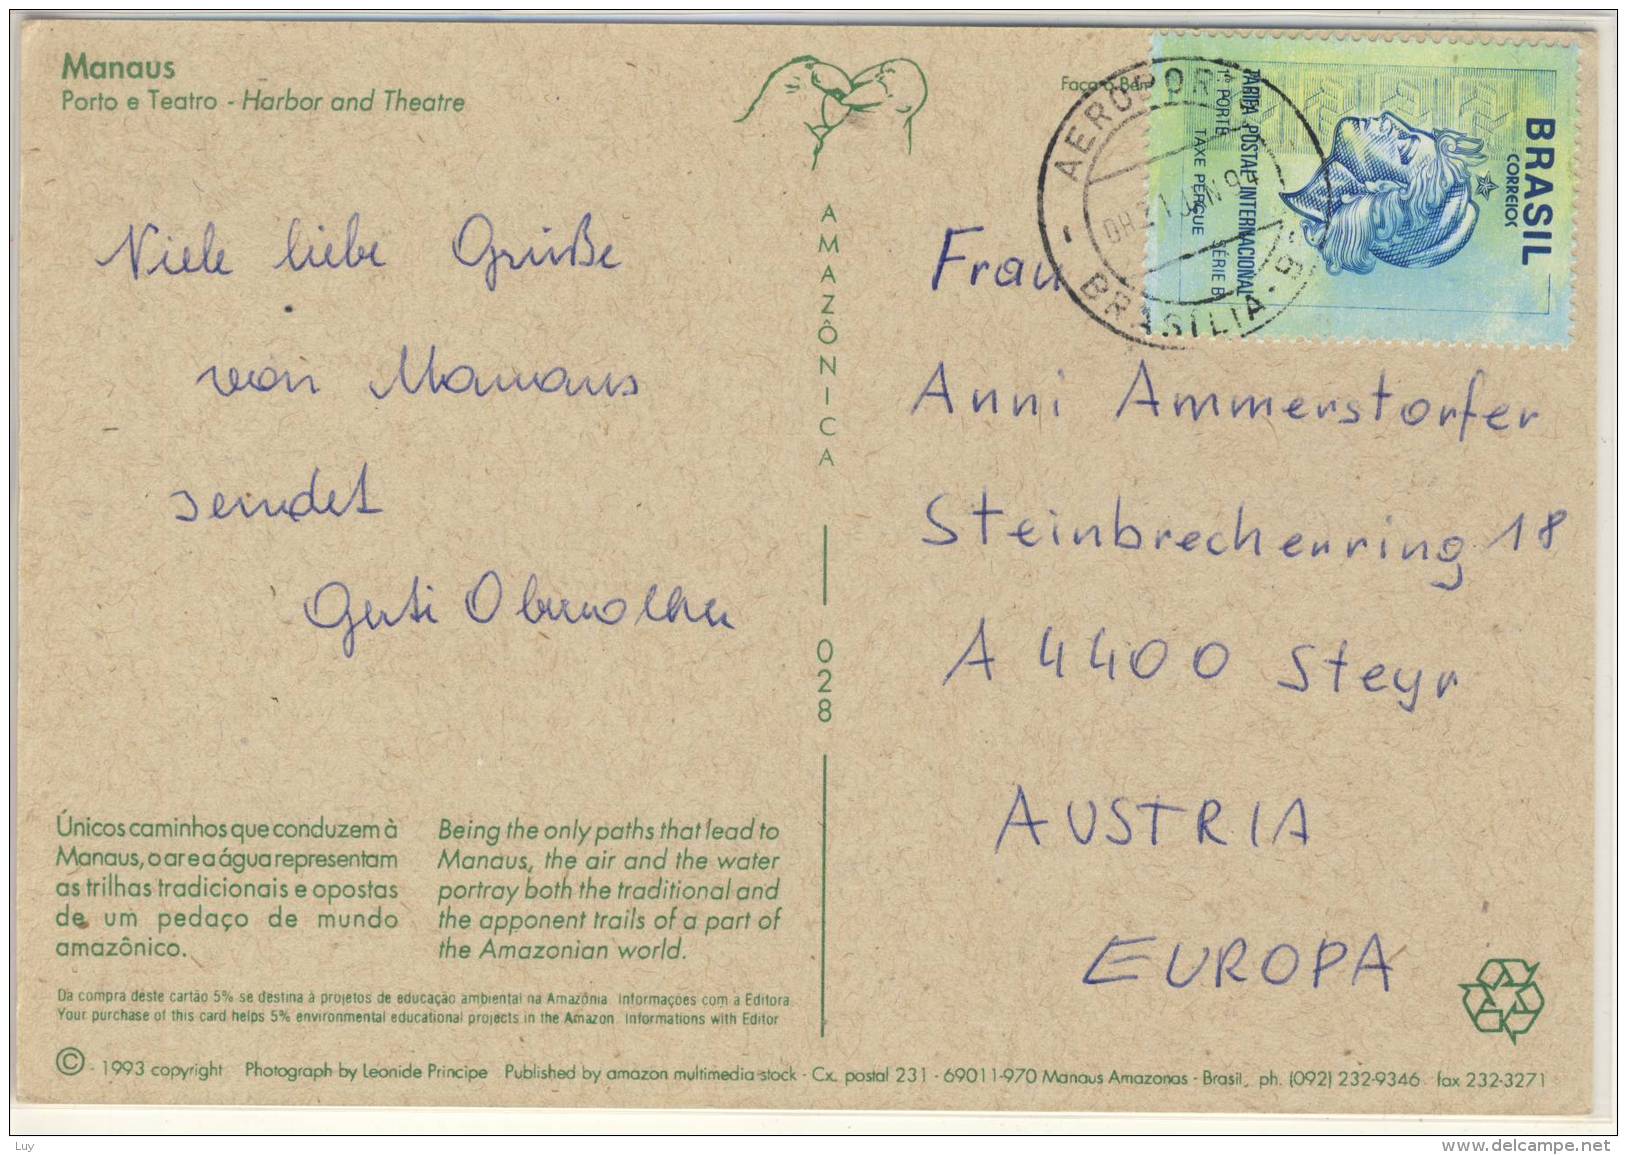 Manaus
Porto e Teatro - Harbor and Theatre
Viele liebe Grüße
von Manaus
sendet
Gerti
AMAZÔNICA
028
Únicos caminhos que conduzem à
Manaus, o ar e a água representam
as trilhas tradicionais e opostas
de um pedaço de mundo
amazônico.
Being the only paths that lead to
Manaus, the air and the water
portray both the traditional and
the apponent trails of a part of
the Amazonian world.
Da compra deste cartão 5% se destina à projetos de educação ambiental na Amazônia. Informações com a Editora
Your purchase of this card helps 5% environmental educational projects in the Amazon. Informations with Editor
© - 1993 copyright Photograph by Leonide Principe Published by amazon multimedia stock - Cx. postal 231 - 69011-970 Manaus Amazonas - Brasil, ph. (092) 232-9346 fax 232-3271
Faça o Bem
BRASIL
CORREIOS
TARIFA POSTAL INTERNACIONAL
1º PORTE TAXE PERÇUE SÉRIE B
BRASILIA
21 JAN
Frau
Anni Ammerstorfer
Steinbrecherring 18
A 4400 Steyr
AUSTRIA
EUROPA
Luy
www.delcampe.net